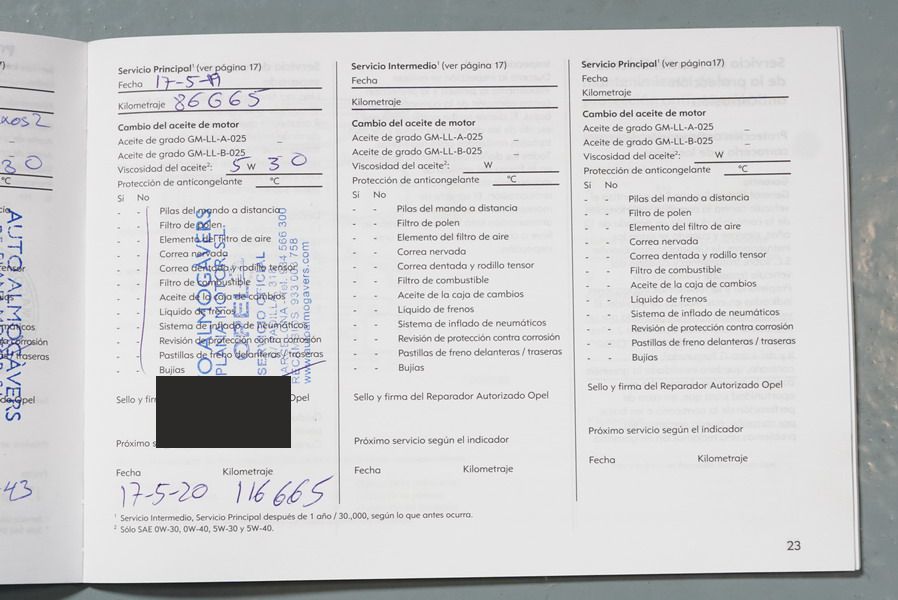 xos2
30
°C
AUTO ALMOGAVERS
43
Servicio Principal¹ (ver página 17)
Fecha 17-5-19
Kilometraje 86665
Cambio del aceite de motor
Aceite de grado GM-LL-A-025 –
Aceite de grado GM-LL-B-025
Viscosidad del aceite²: 5 W 30
Protección de anticongelante °C
Sí No
- - Pilas del mando a distancia
- - Filtro de polen
- - Elemento del filtro de aire
- - Correa nervada
- - Correa dentada y rodillo tensor
- - Filtro de combustible
- - Aceite de la caja de cambios
- - Líquido de frenos
- - Sistema de inflado de neumáticos
- - Revisión de protección contra corrosión
- - Pastillas de freno delanteras / traseras
- - Bujías
O ALMOGAVERS
PLANA MOTOR S.L.
OPEL
SERVICIO OFICIAL
Sello y fir Opel
Próximo s
Fecha Kilometraje
17-5-20 116665
Servicio Intermedio¹ (ver página 17)
Fecha
Kilometraje
Cambio del aceite de motor
Aceite de grado GM-LL-A-025 –
Aceite de grado GM-LL-B-025 –
Viscosidad del aceite²: W
Protección de anticongelante °C
Sí No
- - Pilas del mando a distancia
- - Filtro de polen
- - Elemento del filtro de aire
- - Correa nervada
- - Correa dentada y rodillo tensor
- - Filtro de combustible
- - Aceite de la caja de cambios
- - Líquido de frenos
- - Sistema de inflado de neumáticos
- - Revisión de protección contra corrosión
- - Pastillas de freno delanteras / traseras
- - Bujías
Sello y firma del Reparador Autorizado Opel
Próximo servicio según el indicador
Fecha Kilometraje
Servicio Principal¹ (ver página17)
Fecha
Kilometraje
Cambio del aceite de motor
Aceite de grado GM-LL-A-025 –
Aceite de grado GM-LL-B-025 –
Viscosidad del aceite²: W
Protección de anticongelante °C
Sí No
- - Pilas del mando a distancia
- - Filtro de polen
- - Elemento del filtro de aire
- - Correa nervada
- - Correa dentada y rodillo tensor
- - Filtro de combustible
- - Aceite de la caja de cambios
- - Líquido de frenos
- - Sistema de inflado de neumáticos
- - Revisión de protección contra corrosión
- - Pastillas de freno delanteras / traseras
- - Bujías
Sello y firma del Reparador Autorizado Opel
Próximo servicio según el indicador
Fecha Kilometraje
¹ Servicio Intermedio, Servicio Principal después de 1 año / 30.,000, según lo que antes ocurra.
² Sólo SAE 0W-30, 0W-40, 5W-30 y 5W-40.
23